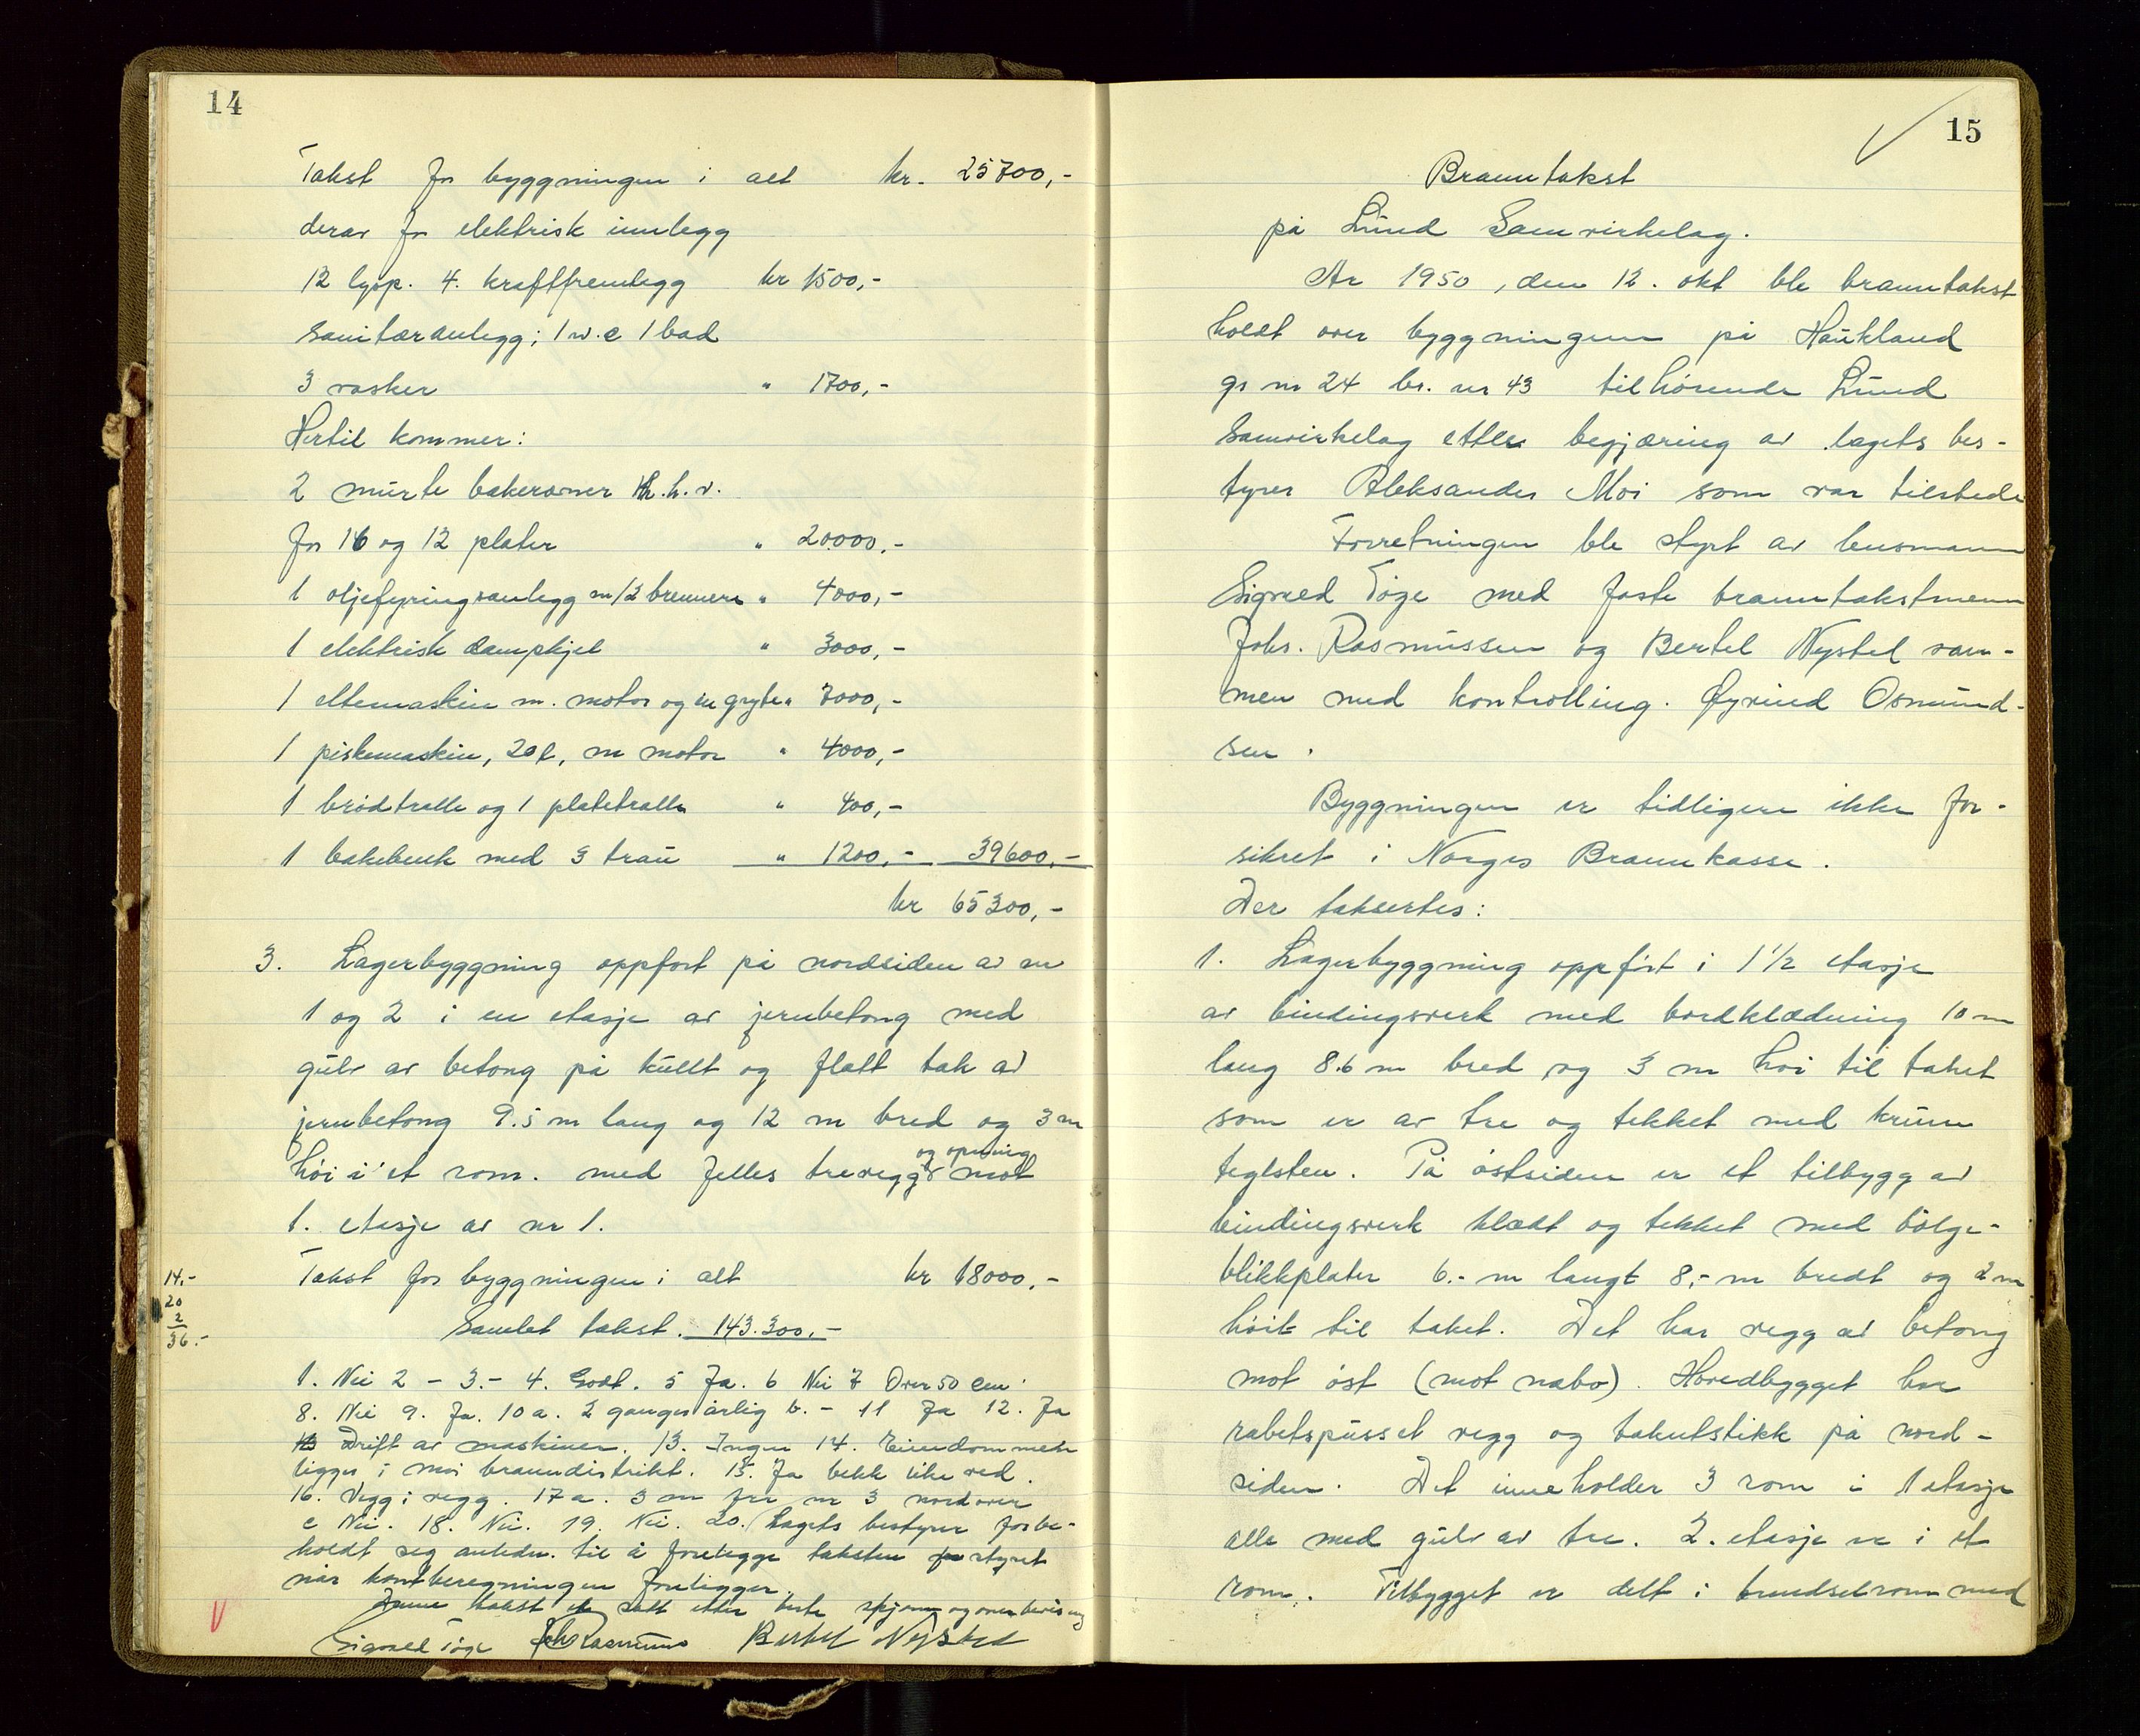 14
Takst for byggningen i alt kr. 25700,-
derav for elektrisk innlegg
12 lysp. 4. kraftfremlegg kr 1500,-
Sanitæranlegg; 1 w.c 1 bad
3 vasker " 1700,-
Hertil kommer:
2 murte bakerovner h.v.
for 16 og 12 plater " 20000,-
1 oljefyringsanlegg m/2 brennere " 4000,-
1 elektrisk dampkjel " 3000,-
1 eltemaskin m. motor og en gryte " 7000,-
1 piskemaskin, 20 l, m motor " 4000,-
1 brødtralle og 1 platetralle " 400,-
1 bakebenk med 3 trau " 1200,- 39600,-
kr 65300,-
3. Lagerbyggning oppført på nordsiden av nr
1 og 2 i en etasje av jernbetong med
gulv av betong på kullt og flatt tak av
jernbetong 9.5 m lang og 12 m bred og 3 m
høi i et rom. med felles trevegg og opning mot
1. etasje av nr 1.
Takst for byggningen i alt kr 18000,-
Samlet takst. 143.300,-
14,-
20
2
36.-
1. Nei 2 - 3.- 4. Godt. 5 Ja. 6 Nei 7 Over 50 cm.
8. Nei 9. Ja. 10 a. 2 ganger årlig b. - 11 Ja 12. Ja
Drift av maskiner. 13. Ingen 14. Eiendommen
ligger i Moi branndistrikt. 15. Ja bekk like ved.
16. Vegg i vegg. 17 a. 3 m fra nr 3 nordover
c Nei. 18. Nei. 19. Nei. 20. Lagets bestyrer forbe-
holdt seg anledn. til å forelegge taksten for styret
når kostberegningen foreligger.
Denne takst er satt etter beste skjønn og overbevisning
Sigvald Tøge Joh Rasmussen Bertel Nystel
15
Branntakst
på Lund Samvirkelag.
År 1950, den 12. okt ble branntakst
holdt over byggningen på Haukland
gr nr 24 br. nr 43 tilhørende Lund
Samvirkelag etter begjæring av lagets bes-
tyrer Aleksander Moi som var tilstede
Forretningen ble styrt av lensmann
Sigvald Tøge med faste branntakstmenn
Johs. Rasmussen og Bertel Nystel sam-
men med kontrolling. Øyvind Osmund-
sen.
Byggningen er tidligere ikke for-
sikret i Norges Brannkasse.
Der taksertes:
1. Lagerbyggning oppført i 1 1/2 etasje
av bindingsverk med bordklædning 10 m
lang 8.6 m bred og 3 m høi til taket
som er av tre og tekket med krum
teglsten. På østsiden er et tilbygg av
bindingsverk klædt og tekket med bølge-
blikkplater 6.- m langt 8,- m bredt og 2 m
høit til taket. Det har vegg av betong
mot øst (mot nabo). Hovedbygget har
rabetspusset vegg og takutstikk på nord-
siden. Det inneholder 3 rom i 1 etasje
alle med gulv av tre. 2. etasje er i et
rom. Tilbygget er delt i brendselrom med